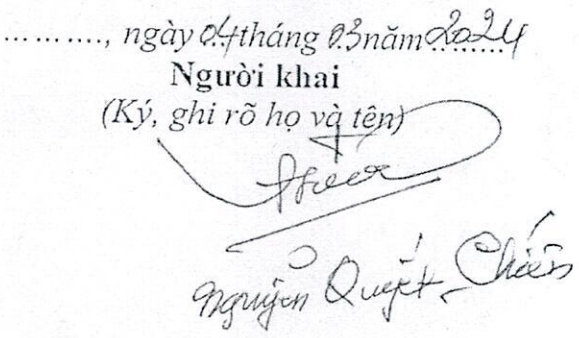 ............, ngày 04 tháng 03 năm 2024
Người khai
(Ký, ghi rõ họ và tên)
Nguyễn Quyết Chiến